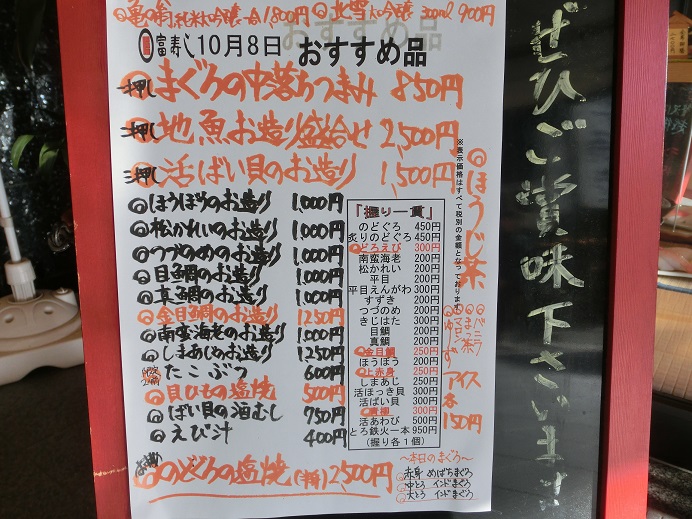 亀の翁 純米大吟醸 一合 1,800円 北雪 大吟醸 300ml 900円
富寿し 10月8日 おすすめ品
一押し まぐろの中落ちつまみ 850円
二押し 地魚お造り盛合せ 2,500円
三押し 活ばい貝のお造り 1,500円
ほうぼうのお造り 1,000円
松かれいのお造り 1,000円
つづのめのお造り 1,000円
目鯛のお造り 1,000円
真鯛のお造り 1,000円
金目鯛のお造り 1250円
南蛮海老のお造り 1,000円
しまあじのお造り 1,250円
たこぶつ 600円
貝ひもの塩焼 500円
ばい貝の酒むし 750円
えび汁 400円
のどぐろの塩焼(半身) 2,500円
「握り一貫」
のどぐろ 450円
炙りのどぐろ 450円
どろえび 300円
南蛮海老 200円
松かれい 200円
平目 200円
平目えんがわ 300円
すずき 200円
つづのめ 200円
きじはた 300円
目鯛 200円
真鯛 200円
金目鯛 250円
ほうぼう 200円
上赤身 250円
しまあじ 250円
活ほっき貝 300円
活ばい貝 300円
青柳 300円
活あわび 500円
とろ鉄火一本 950円
(握り各1個)
~本日のまぐろ~
赤身 めばちまぐろ
中とろ インドまぐろ
大とろ インドまぐろ
※表示価格はすべて税別の金額となっております
ほうじ茶
バニラ
まっ茶
ゆず
マロン
アイス
一本
150円
ぜひご賞味下さいませ